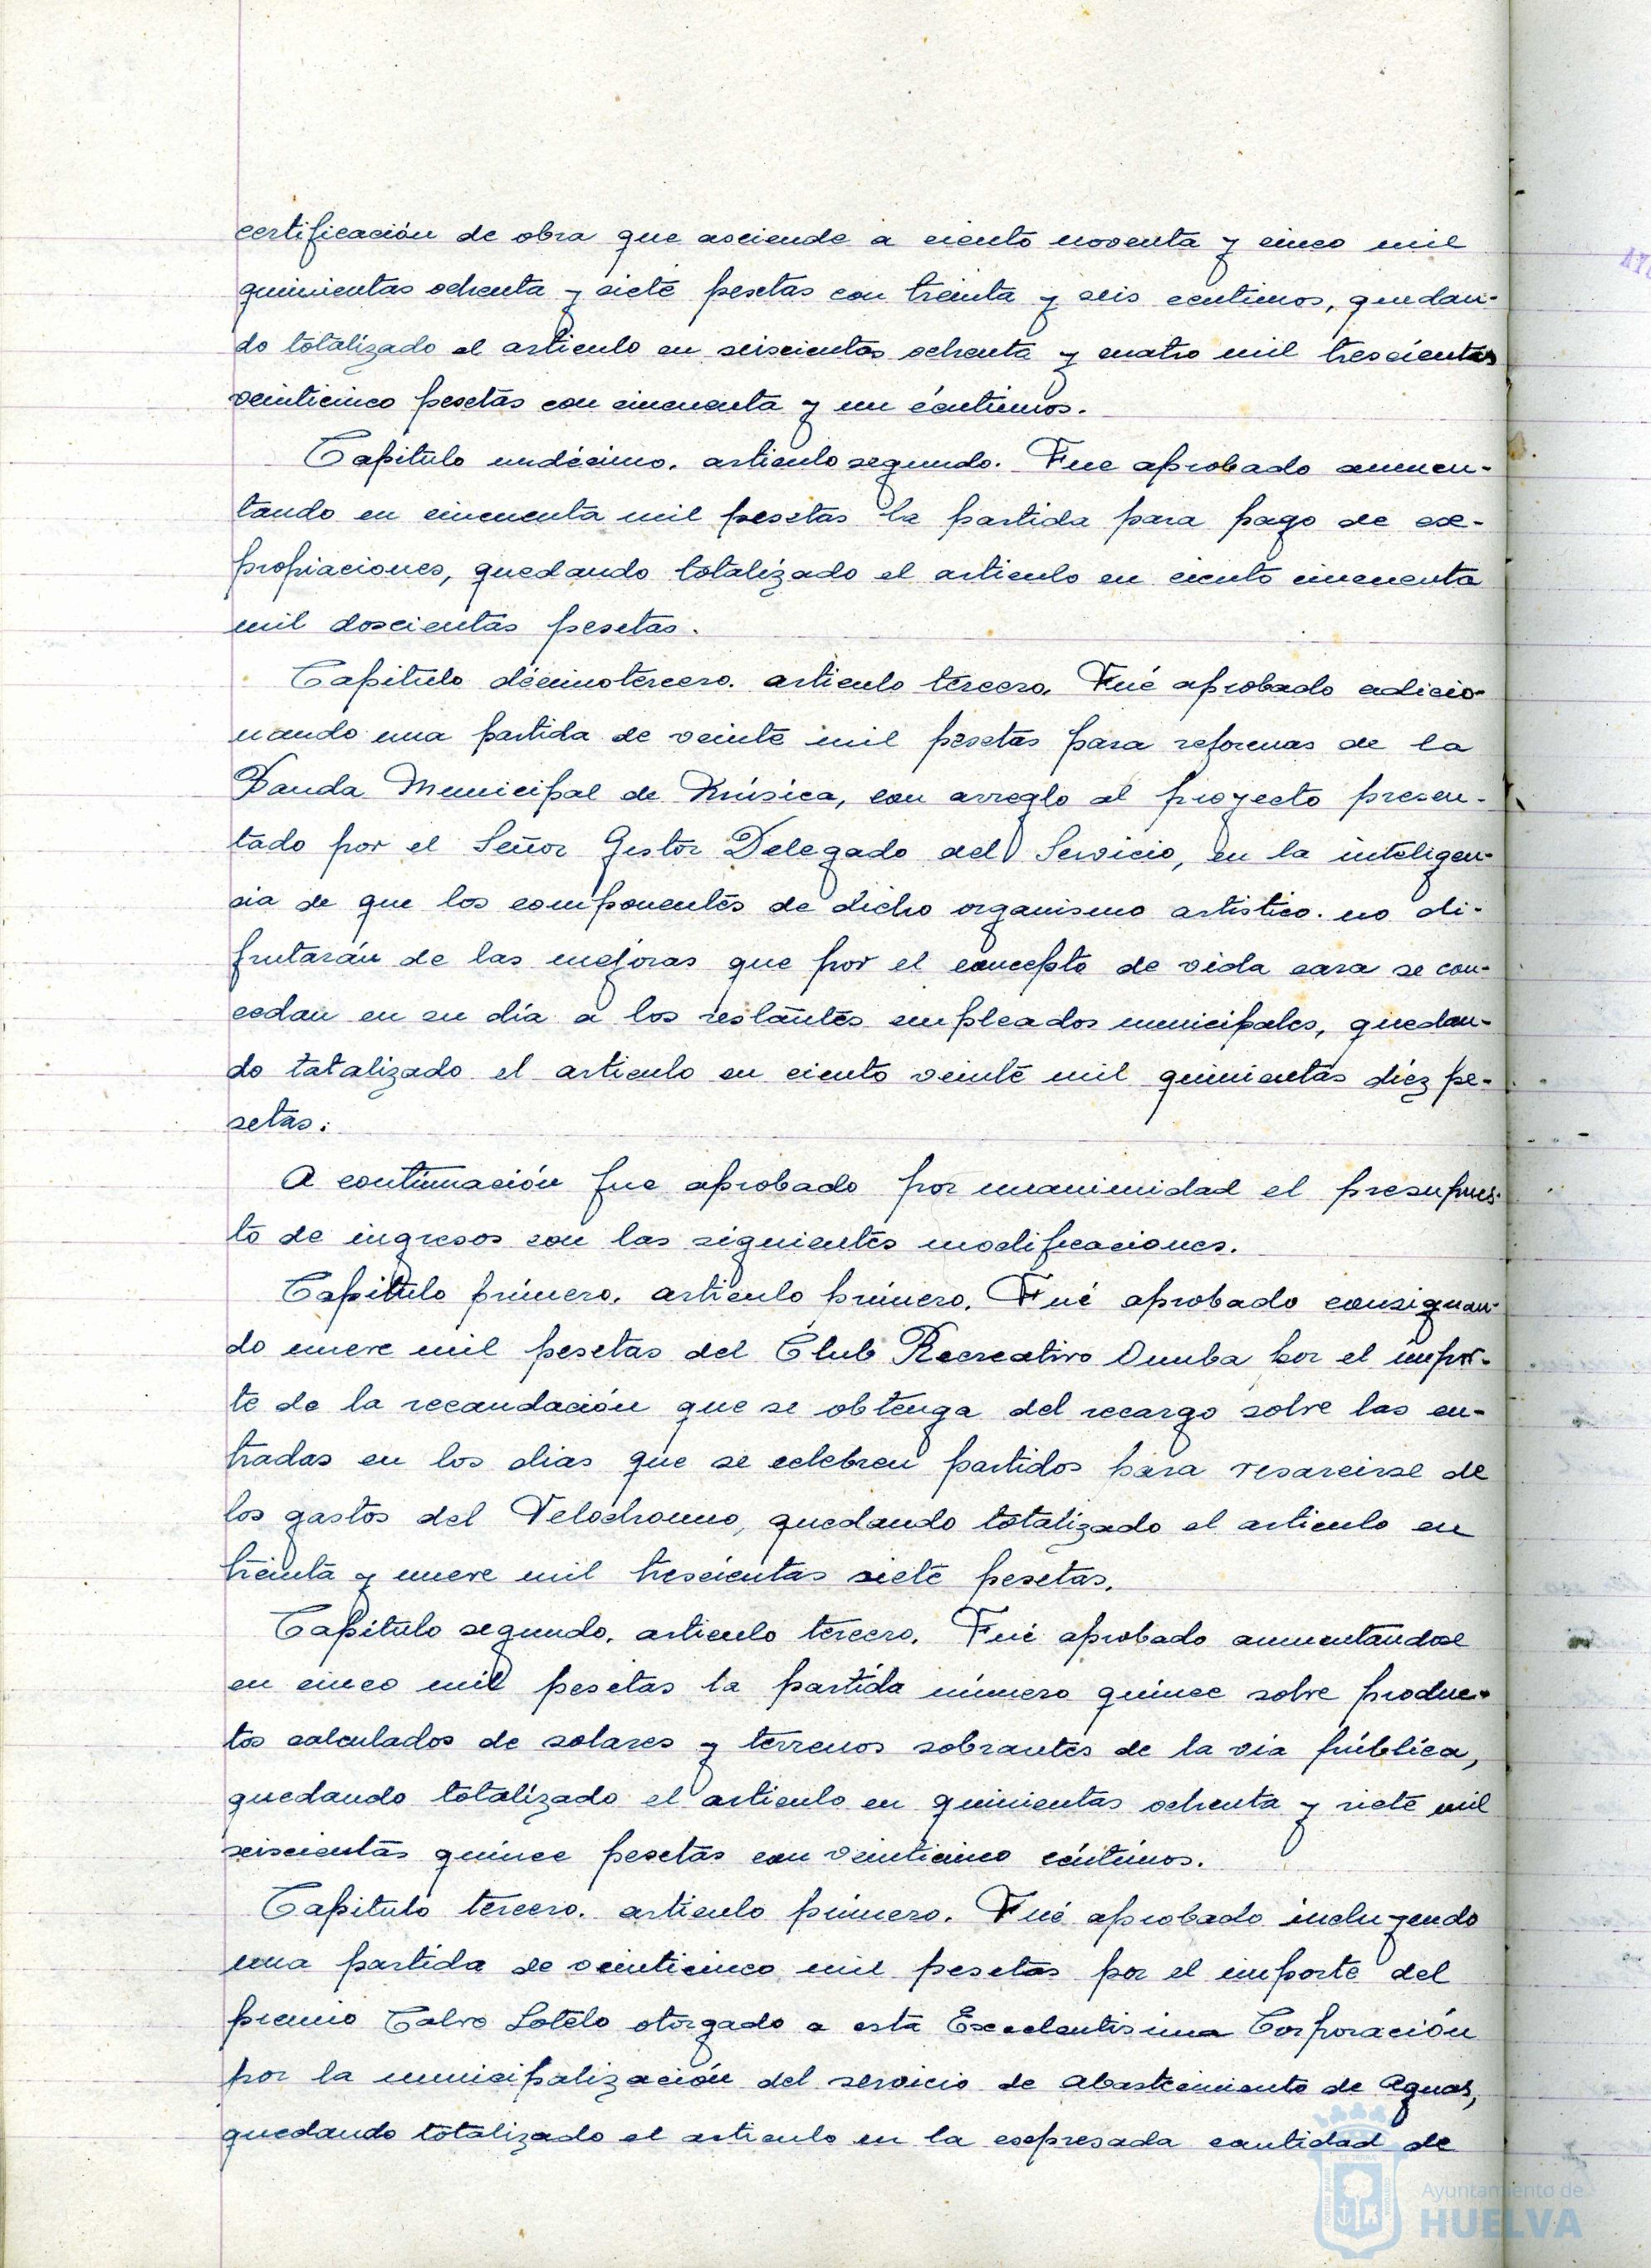 certificación de obra que asciende a ciento noventa y cinco mil
quinientas ochenta y siete pesetas con treinta y seis centimos, quedan-
do totalizado el articulo en seiscientas ochenta y cuatro mil trescientas
veinticinco pesetas con cincuenta y un céntimos.
Capitulo undécimo. articulo segundo. Fue aprobado aumen-
tando en cincuenta mil pesetas la partida para pago de ex-
propiaciones, quedando totalizado el articulo en ciento cincuenta
mil doscientas pesetas.
Capitulo décimotercero. articulo tercero. Fué aprobado adicio-
nando una partida de veinte mil pesetas para reformas de la
Banda Municipal de Música, con arreglo al proyecto presen-
tado por el Señor Gestor Delegado del Servicio, en la inteligen-
cia de que los componentes de dicho organismo artistico. no di-
frutarán de las mejoras que por el concepto de vida cara se con-
cedan en su día a los restantes empleados municipales, quedan-
do tatalizado el articulo en ciento veinte mil quinientas diéz pe-
setas.
A continuación fue aprobado por unanimidad el presupues-
to de ingresos con las siguientes modificaciones.
Capitulo primero. articulo primero. Fué aprobado consignan-
do nueve mil pesetas del Club Recreativo Onuba por el impor-
te de la recaudación que se obtenga del recargo sobre las en-
tradas en los dias que se celebren partidos para resarcirse de
los gastos del Velodromo, quedando totalizado el articulo en
treinta y nueve mil trescientas siete pesetas.
Capítulo segundo. articulo tercero. Fué aprobado aumentandose
en cinco mil pesetas la partida número quince sobre produc-
tos calculados de solares y terrenos sobrantes de la via pública,
quedando totalizado el articulo en quinientas ochenta y siete mil
seiscientas quince pesetas con veinticinco céntimos.
Capitulo tercero. articulo primero. Fué aprobado incluyendo
una partida de veinticinco mil pesetas por el importe del
premio Calvo Sotelo otorgado a esta Excelentisima Corporación
por la municipalización del servicio de abastecimiento de Aguas,
quedando totalizado el articulo en la expresada cantidad de
Ayuntamiento de
HUELVA